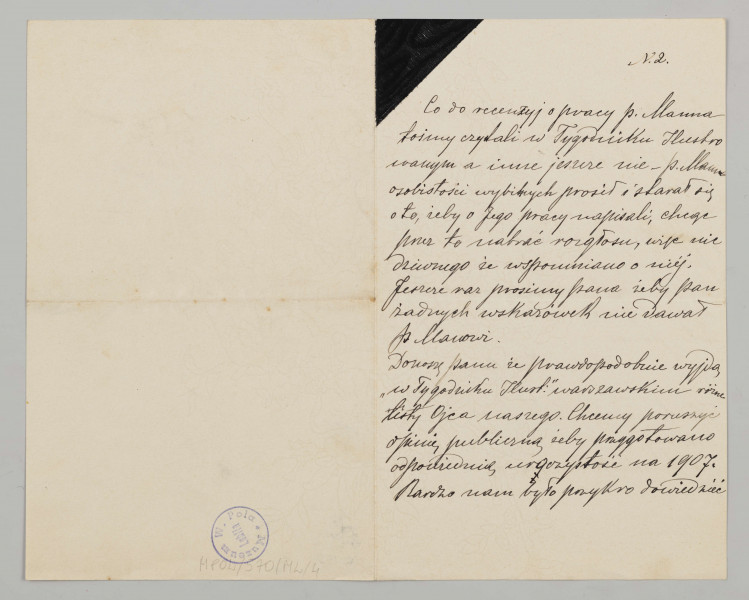 N. 2.
Co do recenzyj o pracy p. Manna
tośmy czytali w Tygodniku Ilustro
wanym a inne jeszcze nie – p. Mann
osobistości wybitnych prosił i starał się
o to, żeby o Jego pracy napisali, chcąc
przez to nabrać rozgłosu, więc nic
dziwnego że wspomniano o niéj.
Jeszcze raz prosimy pana żeby pan
żadnych wskazówek nie dawał
p. Manowi.
Donoszę panu że prawdopodobnie wyjdą
„w Tygodniku Ilust." warszawskim różne
listy Ojca naszego. Chcemy poruszyć
opinię publiczną żeby przygotowano
odpowiednią uroczystość na 1907.
Bardzo nam było przykro dowiedzieć
Muzeum Pola
MPOL/570/ML/4